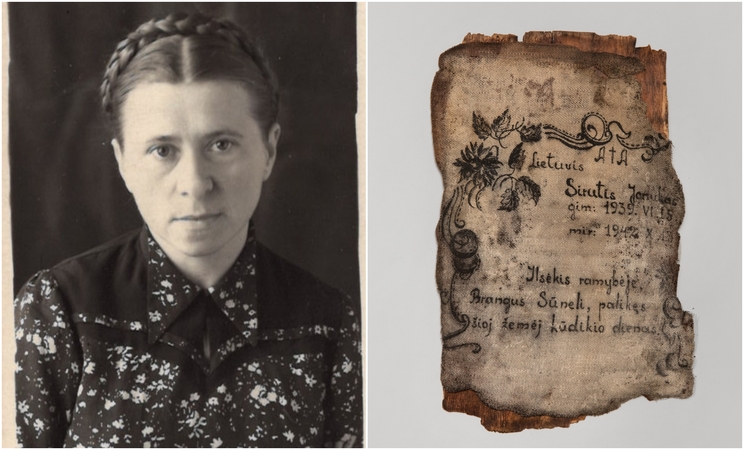 A†A
Lietuvis
Sirutis
gim: 1939. VI. 15
mir: 1942
Ilsėkis ramybėje,
Brangus Sūneli, palikęs
šioj žemėj kūdikio dienas